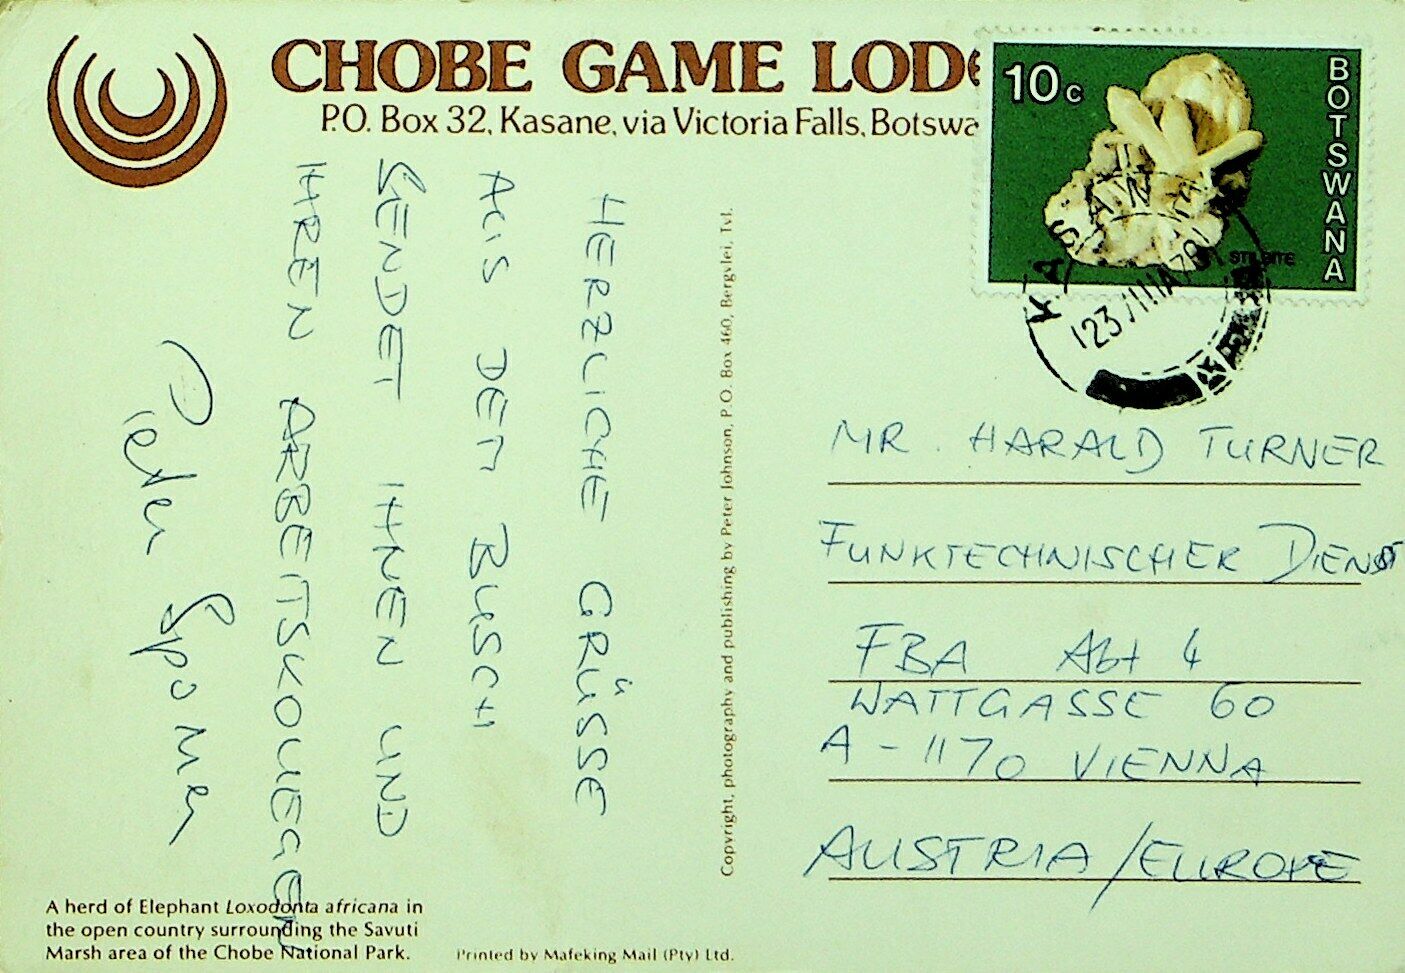 CHOBE GAME LODG
P.O. Box 32, Kasane, via Victoria Falls, Botswa
10c
BOTSWANA
STILBITE
KASANE
23 III 76
HERZLICHE GRÜSSE
AUS DEM BUSCH
SENDET IHNEN UND
IHREN ARBEITSKOLLEGEN
Peter
Copyright, photography and publishing by Peter Johnson, P.O. Box 460, Bergvlei, Tvl.
MR. HARALD TURNER
FUNKTECHNISCHER DIENST
FBA Abt 4
WATTGASSE 60
A-1170 VIENNA
AUSTRIA/EUROPE
A herd of Elephant Loxodonta africana in
the open country surrounding the Savuti
Marsh area of the Chobe National Park.
Printed by Mafeking Mail (Pty) Ltd.